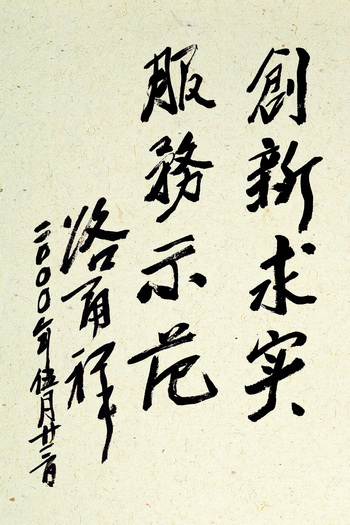 創新求实
服務示范
路甬祥
二〇〇〇年伍月廿二日